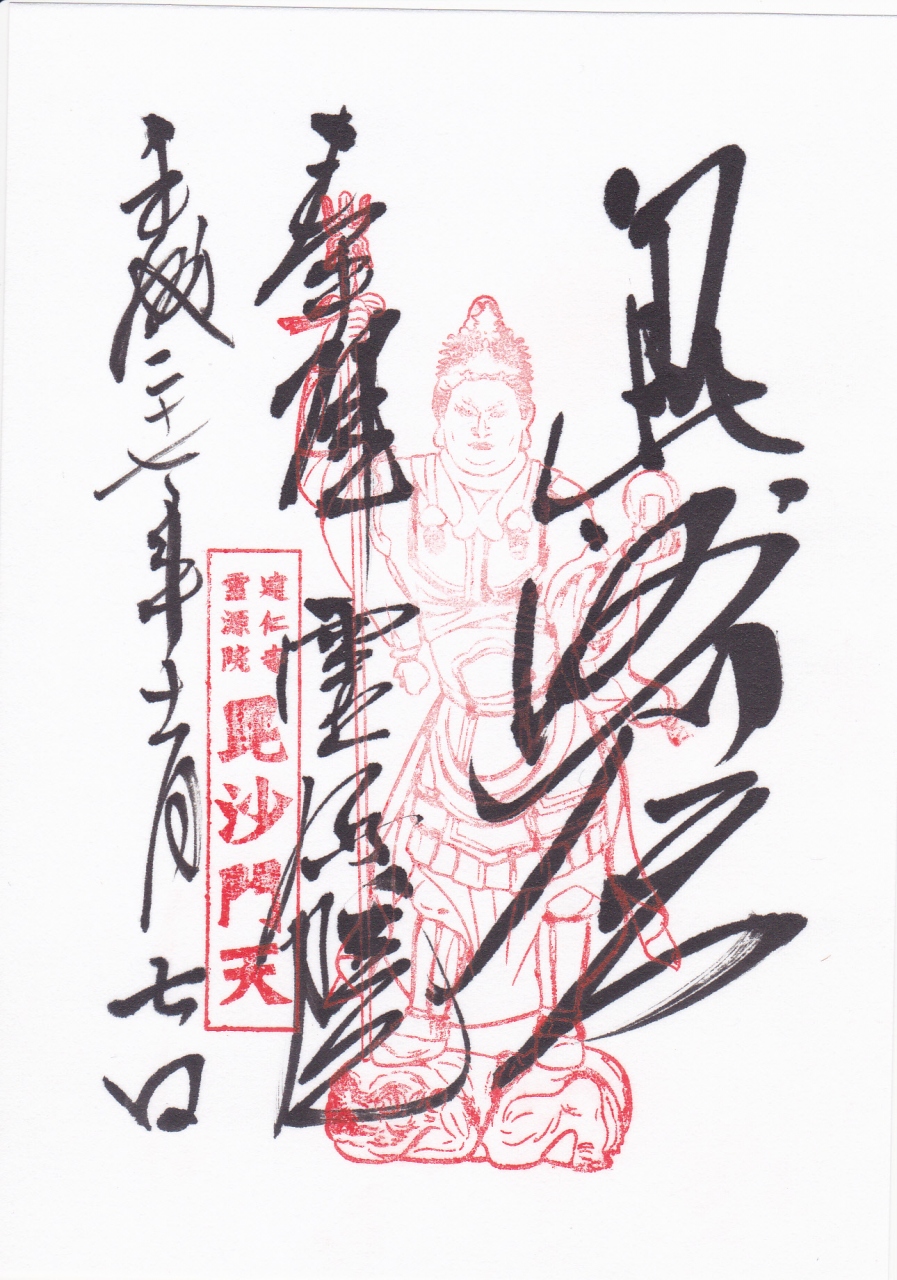 毘沙門天
奉拝 靈源院
建仁寺
霊源院
毘沙門天
平成二十七年十一月七日